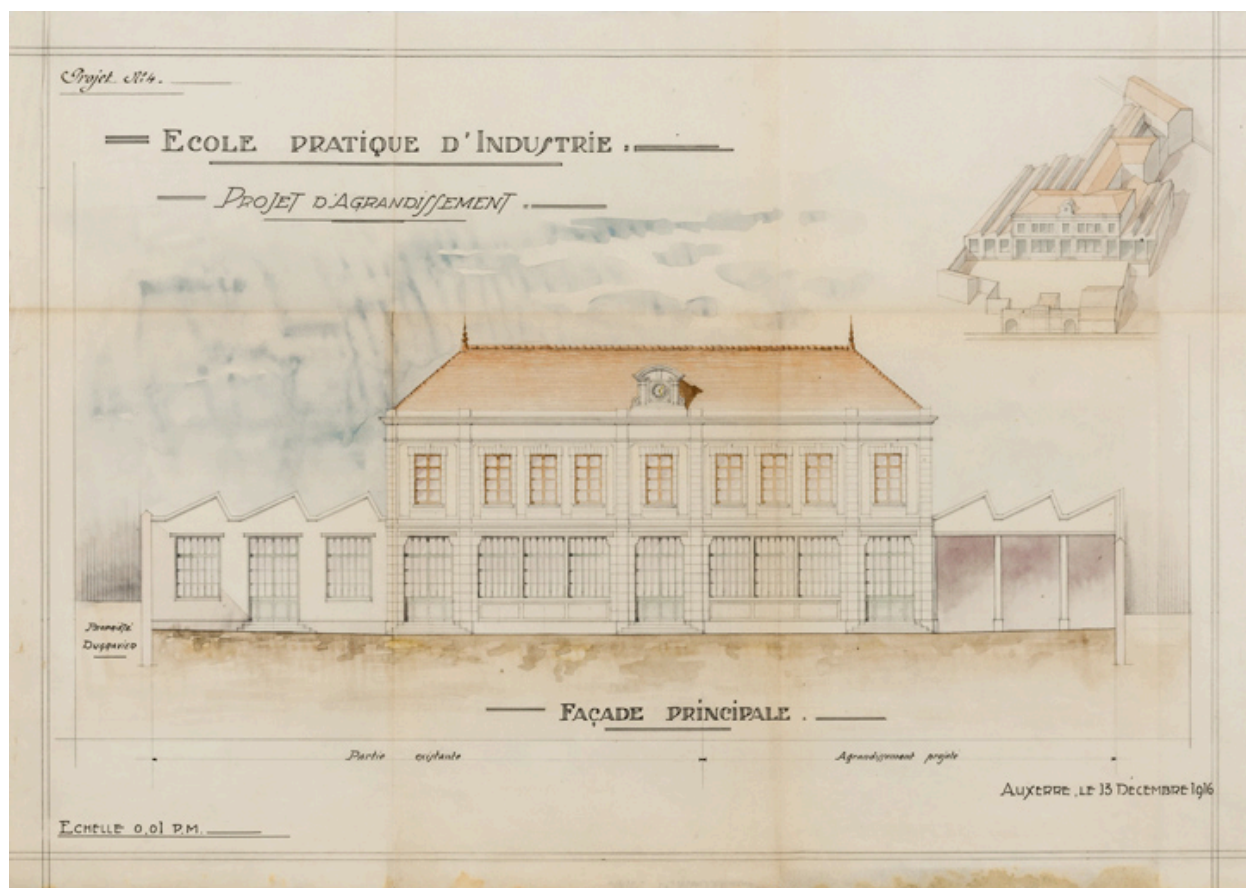 Projet N°4.
ECOLE PRATIQUE D'INDUSTRIE :
PROJET D'AGRANDISSEMENT :
PROPRIÉTÉ
FAÇADE PRINCIPALE .
Partie existante
Agrandissement projeté
AUXERRE, LE 13 DÉCEMBRE 1916
ECHELLE 0,01 P.M.